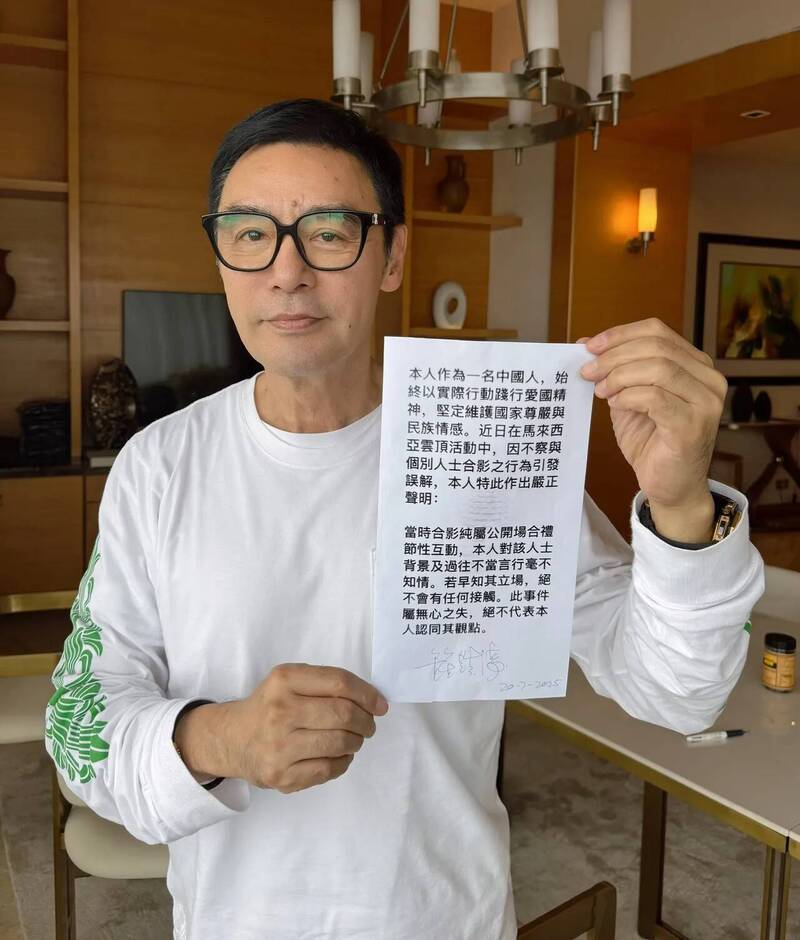 本人作為一名中國人，始
終以實際行動踐行愛國精
神，堅定維護國家尊嚴與
民族情感。近日在馬來西
亞雲頂活動中，因不察與
個別人士合影之行為引發
誤解，本人特此作出嚴正
聲明：
當時合影純屬公開場合禮
節性互動，本人對該人士
背景及過往不當言行毫不
知情。若早知其立場，絕
不會有任何接觸。此事件
屬無心之失，絕不代表本
人認同其觀點。
20-7-2025